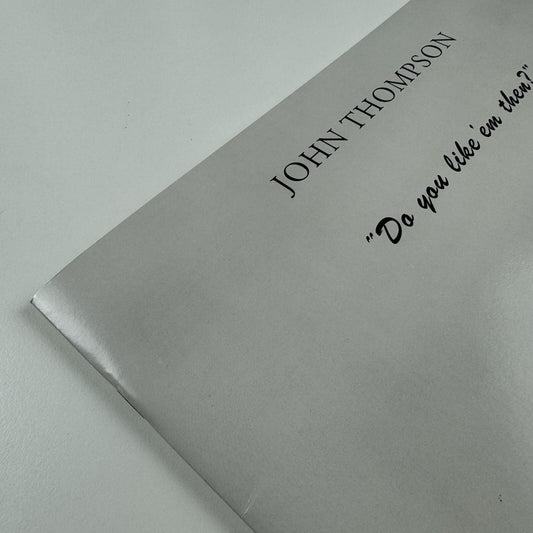 JOHN THOMPSON
"Do you like 'em then?"